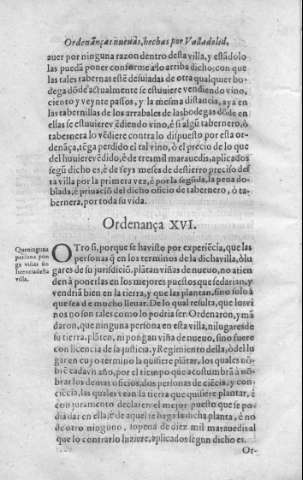 Ordenãças nueuas, hechas por Valladolid,
auer por ninguna razon dentro desta villa, y estãdolo
las puedã poner conforme a lo arriba dicho, con que
las tales tabernas estẽ desuiadas de otra qualquier bo-
dega dõde actualmente se estuuiere vendiendo vino,
ciento y veynte passos, y la mesma distancia, aya en
las tabernillas de los arrabales de las bodegas dõde en
ellas se estuuiere vẽdiendo vino, è si algũ tabernero, ò
tabernera lo vẽdiere contra lo dispuesto por esta or-
denãça, tẽga perdido el tal vino, ò el precio de lo que
del huuiere vẽdido, è de tres mil marauedis, aplicados
segũ dicho es, è de seys meses de destierro preciso des
ta villa por la primera vez, è por la segũda, la pena do-
blada, è priuaciõ del dicho oficio de tabernero, ò ta-
bernera, por toda su vida.
Ordenança XVI.
Que ninguna
persona pon
ga viñas sin
licencia desta
villa.
OTro si, porque se ha visto por experiẽcia, que las
personas q̃ en los terminos de la dicha villa, ò lu
gares de su jurisdiciõ, plãtan viñas de nueuo, no atien
den à ponerlas en los mejores puestos que se darian, y
vendria bien en la tierra, y que las plantean, sino solo à
que sea de mucho lleuar. De lo qual resulta, que los vi
nos no son tales como lo podria ser: Ordenaron, y mã
daron, que ninguna persona en esta villa, ni lugares de
su tierra, plãten, ni pongan viña de nueuo, sino fuere
con licencia de la justicia, y Regimiento della, ò de lu
gar en cuyo termino la quisiere plãtar, los quales nõ-
brẽ cada vn año, por el tiempo que acostumbrã à nõ-
brar los demas oficios, dos personas de ciẽcia, y con-
ciẽcia, las quales vean la tierra que quisiere plantar, è
con juramento declaren el mejor puesto que se po-
dia dar en ella, è de aquel se haga la dicha planta, è no
de otro ninguno, so pena de diez mil marauedis al
que lo contrario hiziere, aplicados segun dicho es.
Or-